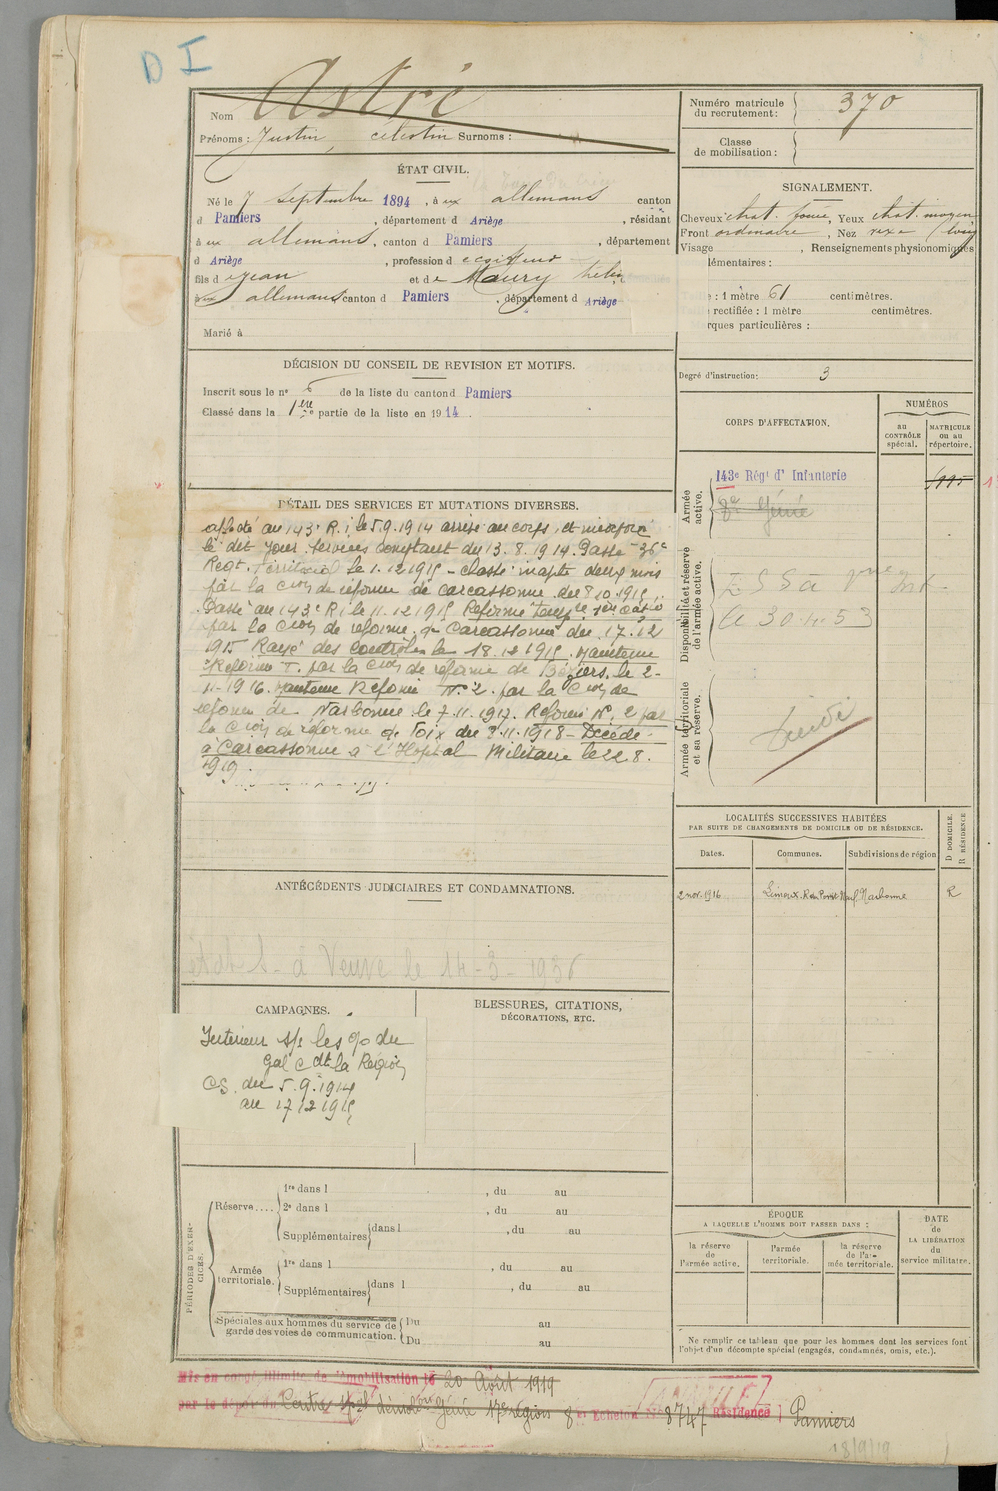 D I
Nom Astré
Prénoms : Justin, célestin Surnoms :
Numéro matricule
du recrutement :
370
Classe
de mobilisation :
ÉTAT CIVIL.
Né le 7 septembre 1894, à ux allemans canton
d Pamiers, département d Ariège, résidant
à ux allemans, canton d Pamiers, département
d Ariège, profession d
fils d e jean et de Maury
aux allemans canton d Pamiers, département d Ariège
Marié à
SIGNALEMENT.
Cheveux chat. foncé, Yeux chat. moyen
Front ordinaire, Nez
Visage , Renseignements physionomiques
lémentaires :
: 1 mètre 61 centimètres.
rectifiée : 1 mètre centimètres.
rques particulières :
Degré d'instruction : 3
DÉCISION DU CONSEIL DE REVISION ET MOTIFS.
Inscrit sous le n° de la liste du canton d Pamiers
Classé dans la 1ère partie de la liste en 1914.
CORPS D'AFFECTATION.
NUMÉROS
au
CONTRÔLE
spécial.
MATRICULE
ou au
répertoire.
Armée
active.
143e Régt d' Infanterie
2e Génie
Disponibilité et réserve
de l'armée active.
le 30.4.53
Armée territoriale
et sa réserve.
DÉTAIL DES SERVICES ET MUTATIONS DIVERSES.
affecté au 143e R.i le 5.9.1914 arrivé au corps, et
le dit jour. Services comptant du 13.8.1914. Passé 36e
Regt. Territorial le 1.12.1915 - classé inapte deux mois
par la Cion de réforme de Carcassonne du 8.10.1915.
Passé au 143e R.i le 11.12.1915 Réformé Temp.re
par la Cion de réforme de Carcassonne du 17.12
1915 Rayé des contrôles le 18.12.1915. Maintenu
Réformé T. par la Cion de réforme de Béziers, le 2-
11-1916. Maintenu Réformé N° 2. par la Cion de
réforme de Narbonne le 7.11.1917. Réformé N° 2 par
la Cion de réforme de Foix du 9.11.1918 - Décédé
à Carcassonne à l'Hopital Militaire le 22.8.
1919.
LOCALITÉS SUCCESSIVES HABITÉES
PAR SUITE DE CHANGEMENTS DE DOMICILE OU DE RÉSIDENCE.
Dates.
Communes.
Subdivisions de région
D DOMICILE.
R RÉSIDENCE
2 nov. 1916 Limoux. R. du Pont Neuf Narbonne R
ANTÉCÉDENTS JUDICIAIRES ET CONDAMNATIONS.
à Veuve le 14-3-1936
CAMPAGNES.
Intérieur s/s les o/o du
Gal Cdt la Région
CS. du 5.9.1914
au 17.12.1915
BLESSURES, CITATIONS,
DÉCORATIONS, ETC.
PÉRIODES D'EXER-
CICES.
Réserve....
1re dans l , du au
2e dans l , du au
Supplémentaires dans l , du au
Armée
territoriale.
1re dans l , du au
Supplémentaires dans l , du au
Spéciales aux hommes du service de
garde des voies de communication.
Du au
Du au
ÉPOQUE
A LAQUELLE L'HOMME DOIT PASSER DANS :
la réserve
de
l'armée active.
l'armée
territoriale.
la réserve
de l'ar-
mée territoriale.
DATE
de
LA LIBÉRATION
du
service militaire.
Ne remplir ce tableau que pour les hommes dont les services font
l'objet d'un décompte spécial (engagés, condamnés, omis, etc.).
Mis en congé illimité de démobilisation le 20 Août 1919
par le dépôt du Centre démobon Génie 17e région 8e Echelon N° 8747 Résidence Pamiers
ANNULÉ
18/9/19